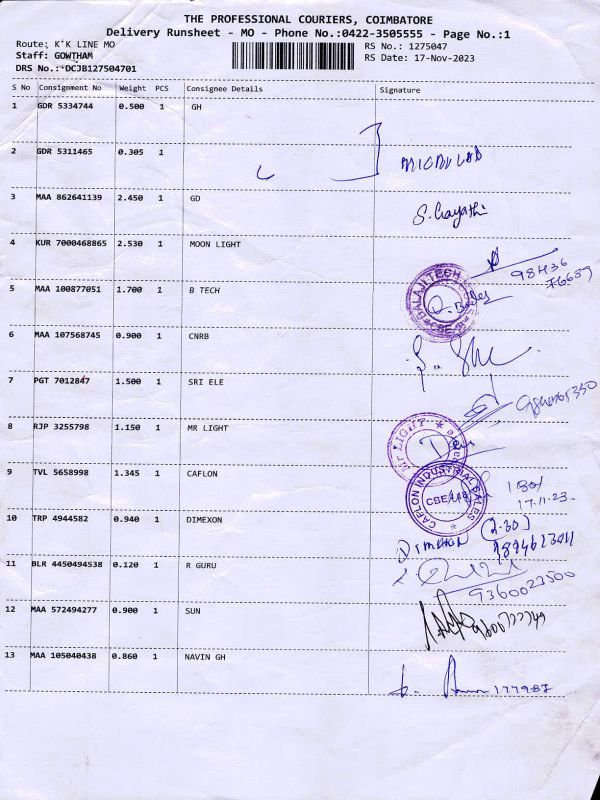 THE PROFESSIONAL COURIERS, COIMBATORE
Delivery Runsheet - MO - Phone No.:0422-3505555 - Page No.:1
Route: K K LINE MO
RS No.: 1275047
Staff: GOWTHAM
RS Date: 17-Nov-2023
DRS No.: DCJB127504701
S No Consignment No Weight PCS Consignee Details Signature
1 GDR 5334744 0.500 1 GH
2 GDR 5311465 0.305 1
3 MAA 862641139 2.450 1 GD S. Gayathi
4 KUR 7000468865 2.530 1 MOON LIGHT
5 MAA 100877051 1.700 1 B TECH BALAJI TECH CBE
6 MAA 107568745 0.900 1 CNRB
7 PGT 7012847 1.500 1 SRI ELE
8 RJP 3255798 1.150 1 MR LIGHT LIGHT
9 TVL 5658998 1.345 1 CAFLON CAFLON INDUSTRIAL SALES CBE
17.11.23
10 TRP 4944582 0.940 1 DIMEXON
11 BLR 4450494538 0.120 1 R GURU
9360023500
12 MAA 572494277 0.900 1 SUN
13 MAA 105040438 0.860 1 NAVIN GH